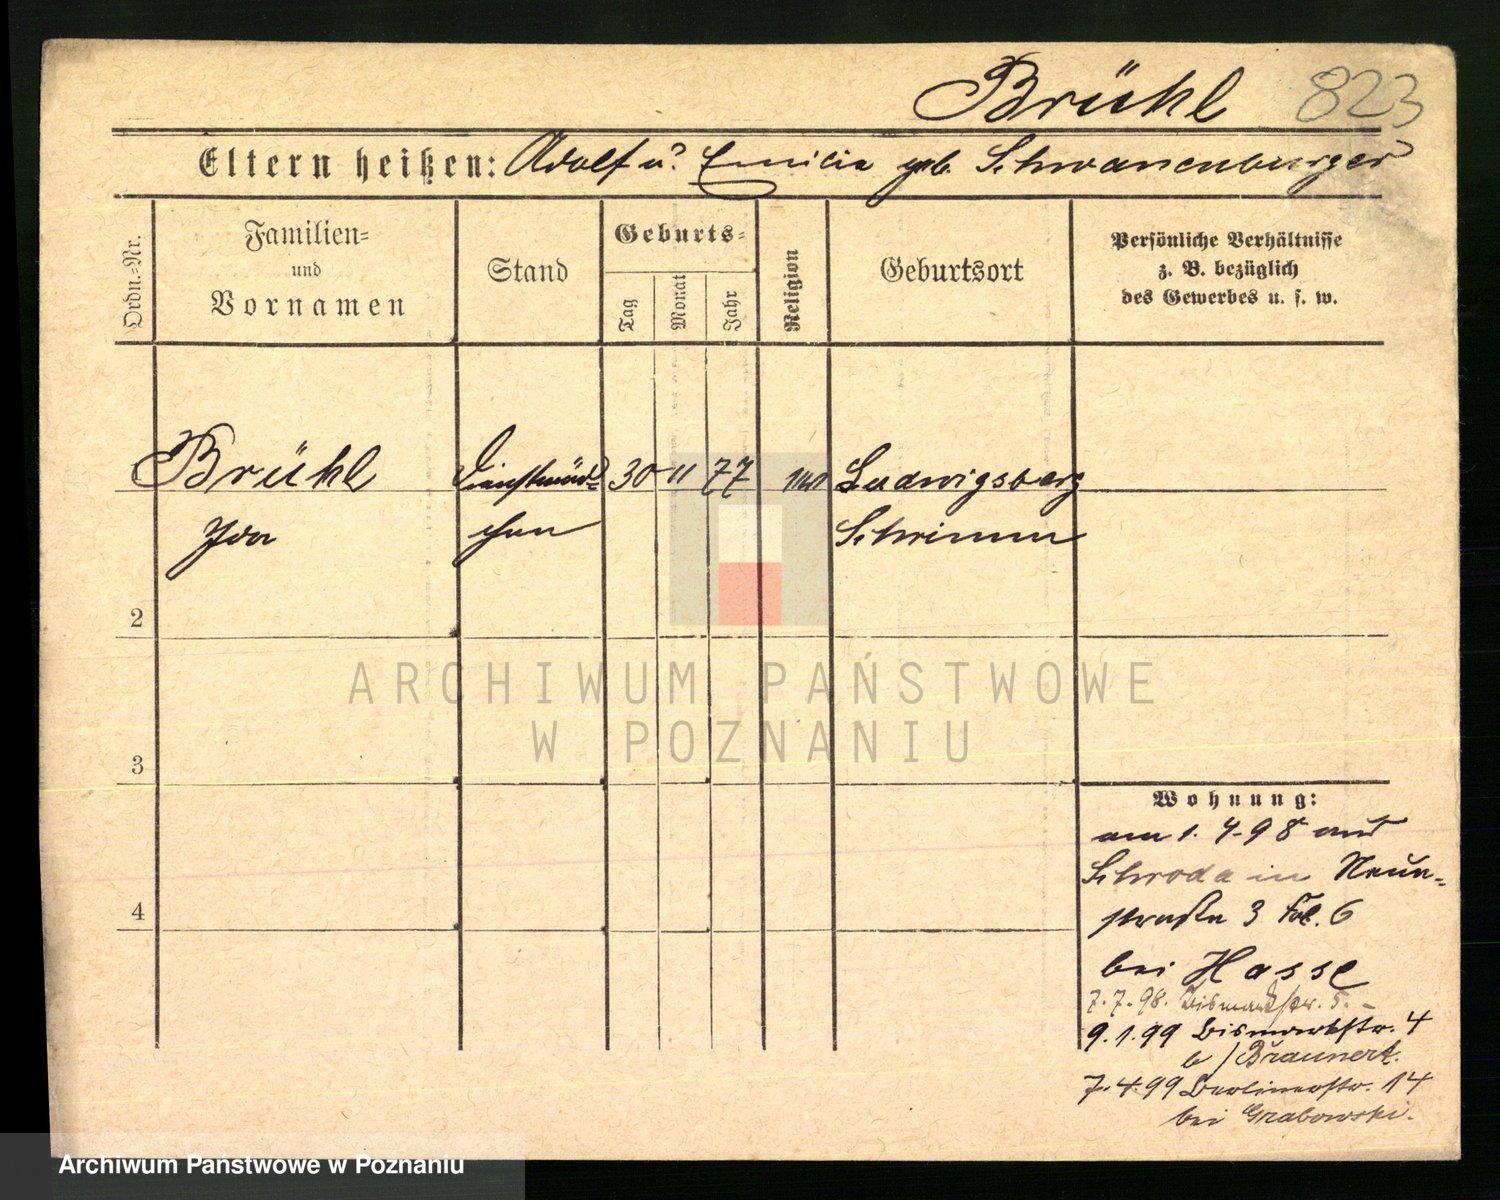 Brühl 823
Eltern heißen: Adolf u. Emilie geb. Schwanenburger
Ordn.-Nr.
Familien-
und
Vornamen
Stand
Geburts-
Tag
Monat
Jahr
Religion
Geburtsort
Persönliche Verhältnisse
z. B. bezüglich
des Gewerbes u. s. w.
Brühl Dienstmäd- 30 11 77 Ludwigsberg
Ida chen Schrimm
2
3
4
ARCHIWUM PAŃSTWOWE
W POZNANIU
Wohnung:
am 1. 4. 98 aus
Schroda in Neue-
straße 3 6
bei Hasse
7. 7. 98. Bismarckstr. 5.
9. 1. 99 Bismarkstr. 4
b/ Braunert.
7. 4. 99 Berlinerstr. 14
bei Grabowski.
Archiwum Państwowe w Poznaniu